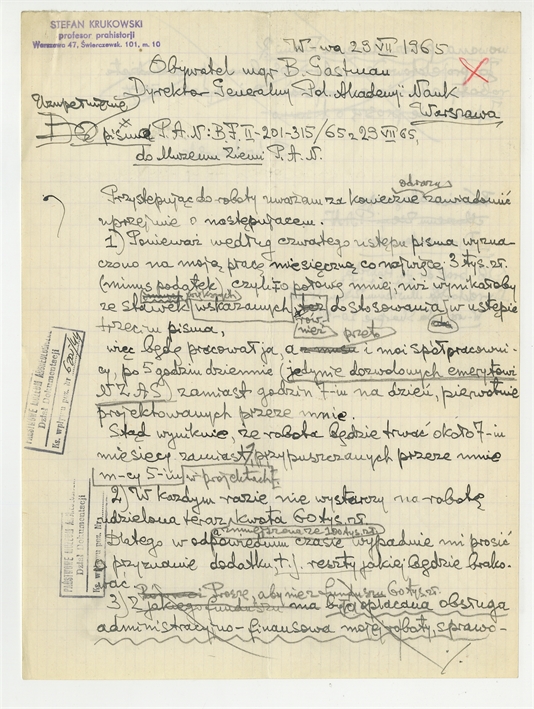 STEFAN KRUKOWSKI
profesor prahistorji
Warszawa 47, Świerczewsk. 101, m. 10
W-wa 29 VII 1965
Obywatel mgr B. Gastman
Dyrektor Generalny Pol. Akademji Nauk
Warszawa
Uzupełnienie
D pisma P.A.N: BF II-201-315/65 z 29 VII 65,
do Muzeum Ziemi P.A.N.
odrazu
Przystępując do roboty uważam za konieczne zawiadomić
uprzejmie o następującem.
1) Ponieważ według czwartego ustępu pisma wyzna-
czono na moją pracę miesięczną co najwyżej 3 tys. zł.
(minus podatek), czyli o połowę mniej, niż wynikałoby
ze stawek wskazanych do stosowania w ustępie
rów-
nież
przeto
trzecim pisma,
więc będę pracował ja, a i moi spółpracowni-
cy, po 5 godzin dziennie (jedynie dozwolonych emerytowi
zamiast godzin 7-in na dzień, pierwotnie
projektowanych przeze mnie.
Stąd wyniknie, że robota będzie trwać około 7-in
miesięcy zamiast przypuszczanych przeze mnie
m-cy 5-in w projektach.
2) W każdym razie nie wystarczy na robotę
udzielona teraz kwota 60 tys. zł.
a zmniejszona ze 100 tys. zł.
Dlatego w odpowiedniem czasie wypadnie mi prosić
o przyznanie dodatku, t.j. reszty jakiej będzie brako-
wać.
Proszę, aby nie z funduszu 60 tys. zł.
3) Z jakiego funduszu ma być opłacana obsługa
administracyjno-finansowa mojej roboty, sprawo-
PAŃSTWOWE MUZEUM ARCHEOLOGICZNE
Dział Dokumentacji
Ks. wpływu poz. nr
PAŃSTWOWE MUZEUM ARCHEOLOGICZNE
Dział Dokumentacji
Ks. wpływu poz. nr